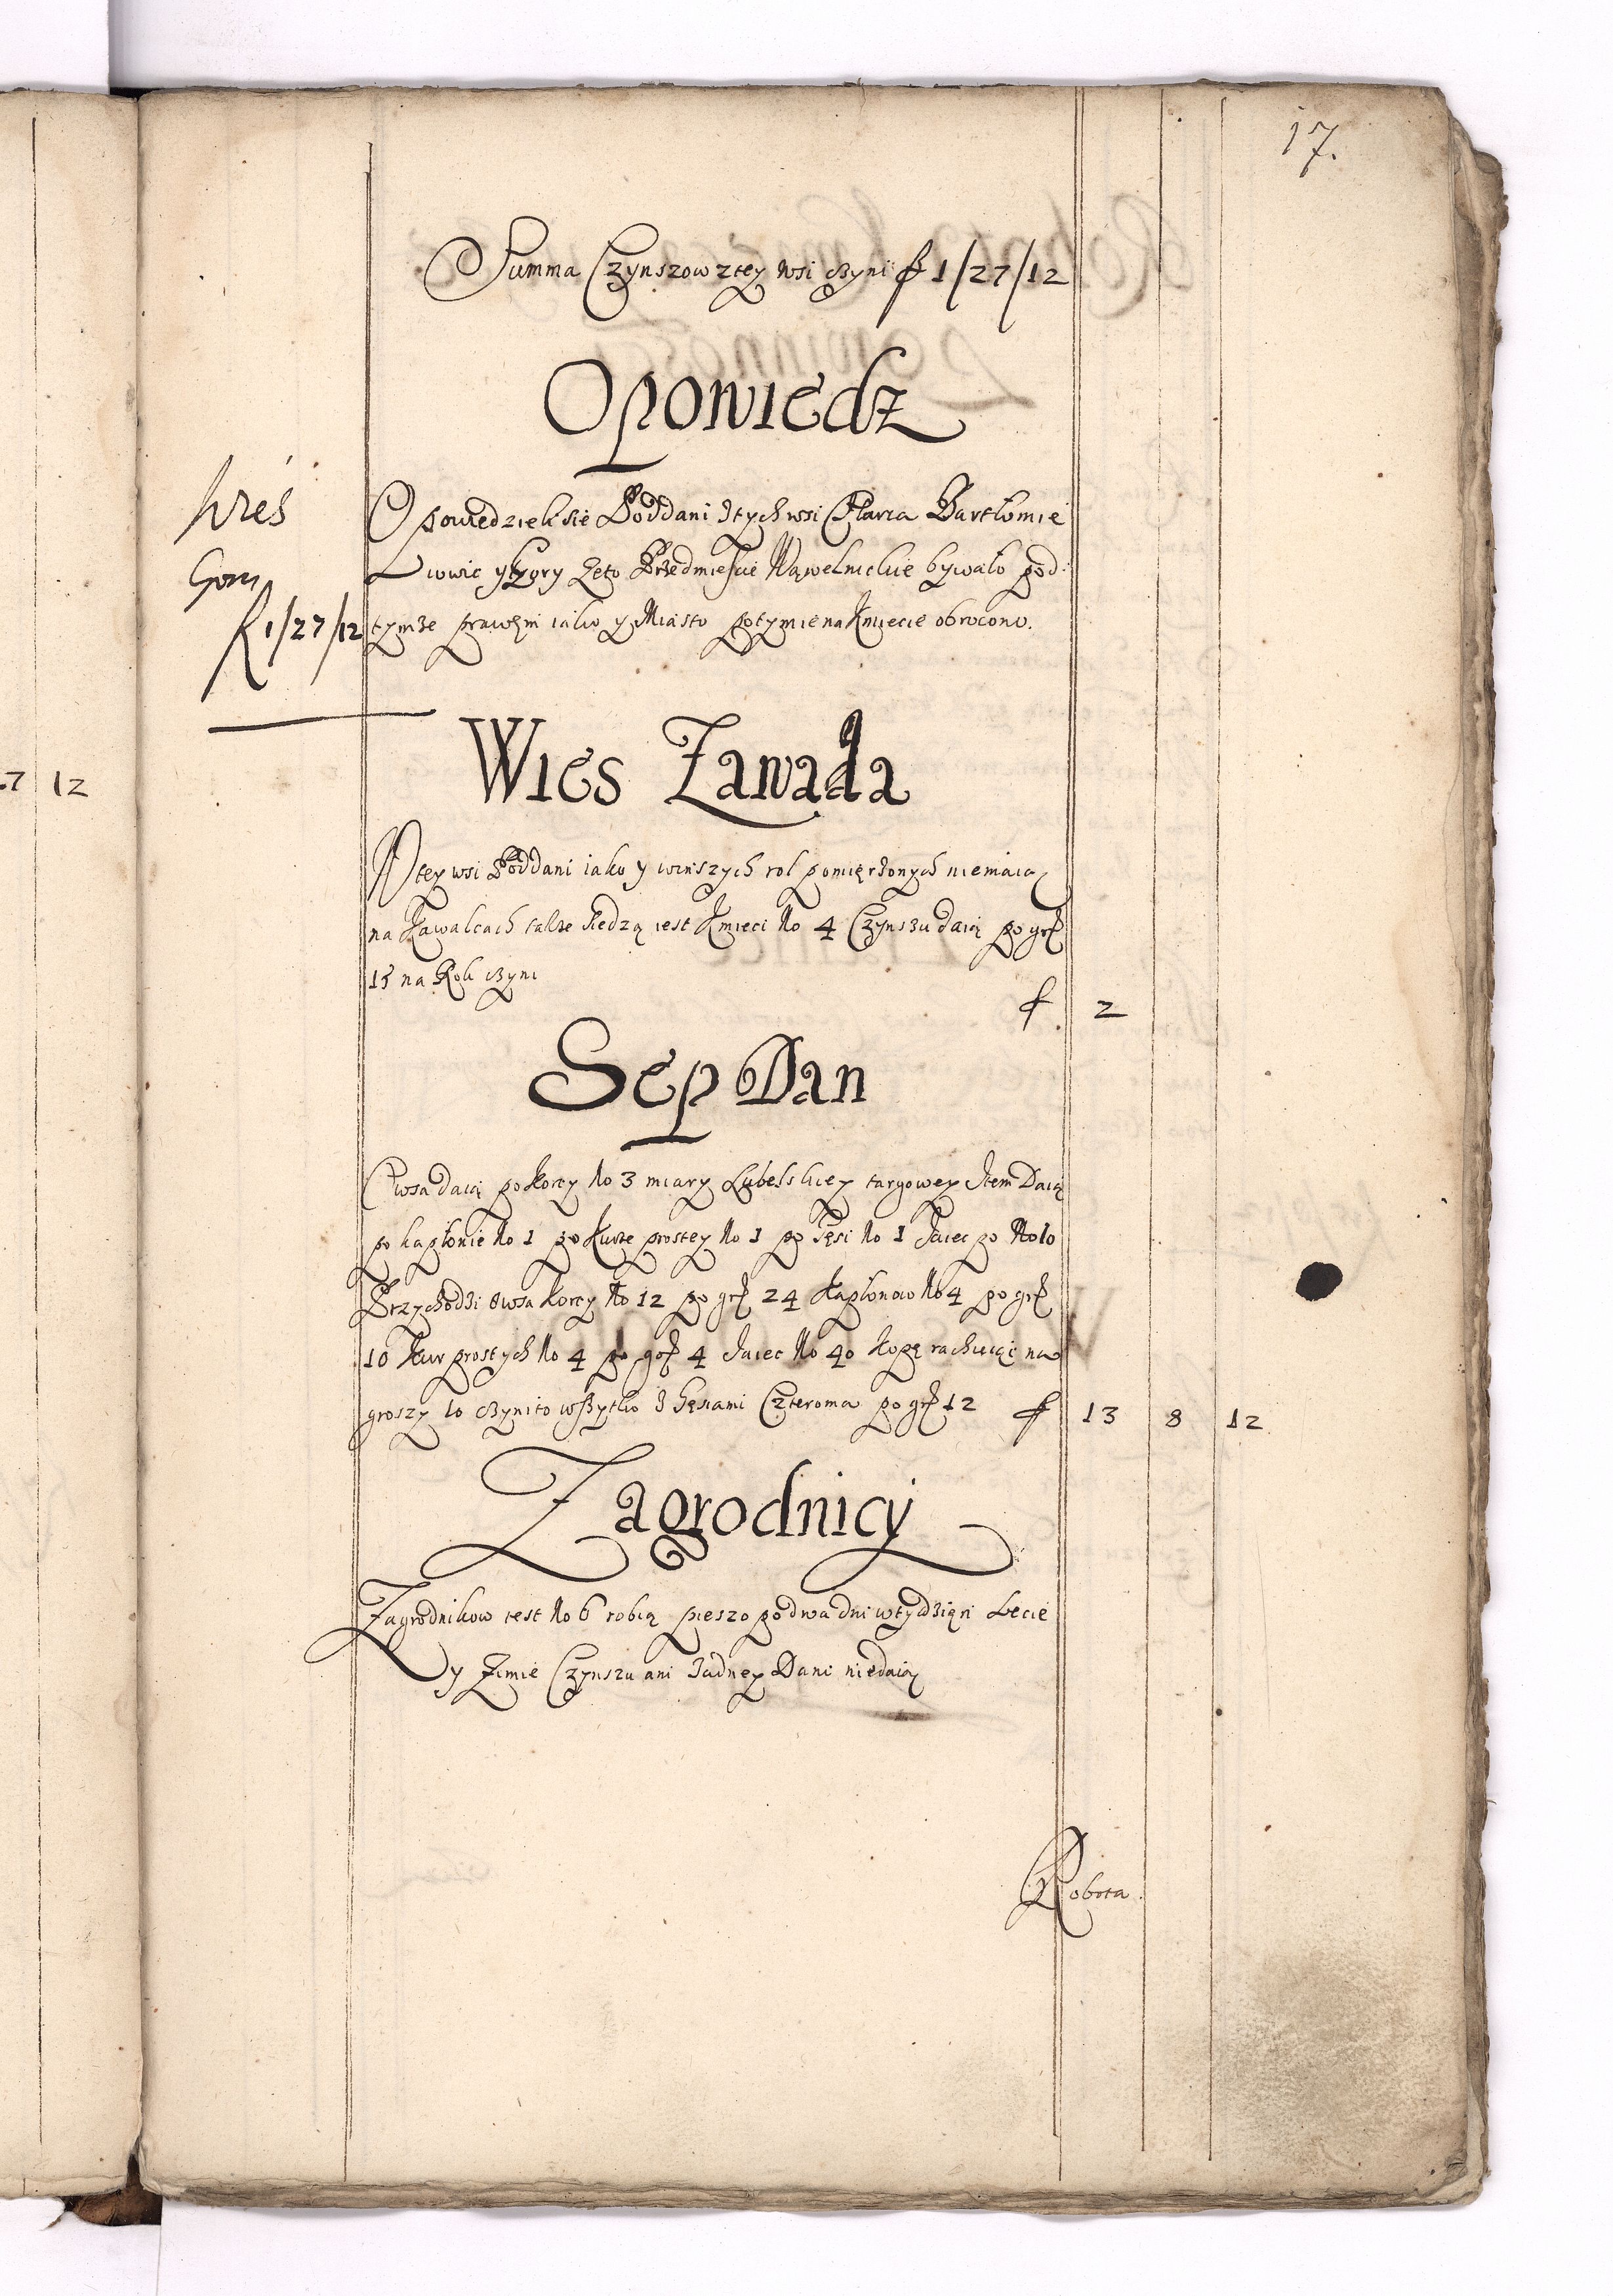 17.
Summa Czynszow z tey wsi czyni f 1/27/12
Opowiedz
Opowiedzieli sie Poddani z tych wsi Bartłomie
y Gory że to Przedmiescie bywało pod
tymze prawem iako y Miasto potym ie na kmiecie obrocono.
Wieś
Gory
f 1/27/12
Wies Zawada
W tey wsi Poddani iako y w inszych rol pomierzonych niemaią
na Kawalcach takze siedzą iest Kmieci No 4 Czynszu daią po grs
15 na Rok czyni
f 2
Sep Dan
Owsa daią po Korcy No 3 miary Lubelskiey targowey Item Daią
po kapłonie No 1 po Kurze prostey No 1 po Gęsi No 1 Jaiec po No 10
Przychodzi owsa Korcy No 12 po grs 24 Kapłonow No 4 po grs
10 Kur prostych No 4 po grs 4 Jaiec No 40 Kopę rachuiąc na
groszy 10 czyni to wszytko z Gęsiami Czteroma po grs 12 f 13 8 12
Zagrodnicy
Zagrodnikow iest No 6 robią pieszo po dwa dni w tydzień Lecie
y Zimie Czynszu ani Zadney Dani niedaią
Robota
7 12